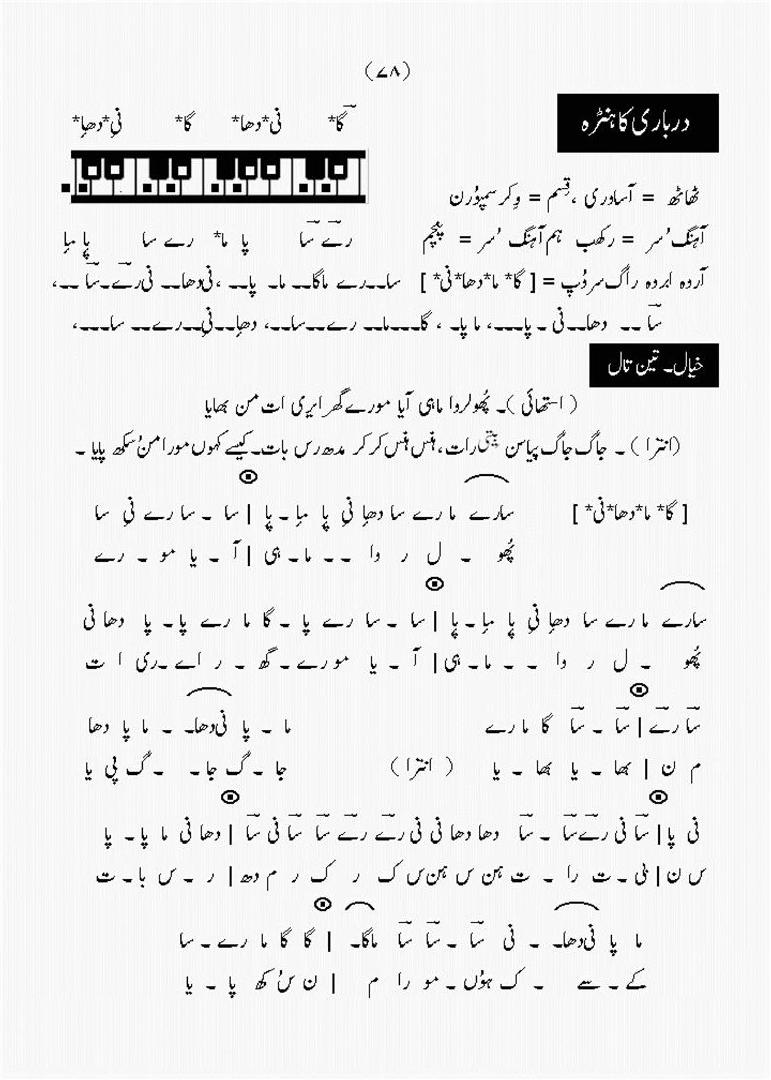 (۷۸)
درباری کا ہنٹرہ
گا* نی*دھا* گا* نی*دھا*
ٹھاٹھ = آساوری ، قِسم = وِکر سمپوُرن
رے سا پا ما* رے سا پا ما
آہنگ سُر = رکھب ہم آہنگ سُر = پنچم
آردہ ابردہ راگ سروُپ = [ گا* ما*دھا*نی* ] سا۔۔رے ماگا۔۔ ما۔ پا۔۔ ،نی دھا۔۔ نی رے۔سا ۔۔،
سا ۔۔ دھا۔۔نی ۔ پا۔۔۔، ما پا۔ ، گا۔۔۔ما۔۔ رے۔۔سا۔۔، دھا۔۔نی۔۔رے۔۔ سا۔۔۔،
خیال۔ تین تال
( استھائی )۔ پھُولروا ماہی آیا مورے گھر ایری ات من بھایا
(انترا ) ۔ جاگ جاگ پیاسن بیتی رات، ہنس ہنس کر کر مدھ رس بات۔ کیسے کہوں مورا من سُکھ پایا ۔
[ گا* ما*دھا*نی* ] سارے ما رے سا دھا نی پا ما ۔ پا | سا ۔ سا رے نی سا
پھُو ۔ ل ر وا ۔ ۔ ما ۔ ہی | آ ۔ یا مو ۔ رے
سارے ما رے سا دھا نی پا ما۔ پا | سا ۔ سا رے پا ۔ گا ما رے پا۔ پا دھا نی
پھُو ۔ ل ر وا ۔ ۔ ما ۔ ہی | آ ۔ یا مو رے ۔ گھ ۔ ر اے ۔ری ا ت
سا رے | سا ۔ سا گا ما رے ما ۔ پا نی دھا۔ ۔ ما پا دھا
م ن | بھا ۔ یا بھا ۔ یا ( انترا ) جا ۔ گ جا ۔ ۔ گ پی یا
نی پا | سا نی رے سا ۔ سا دھا دھا نی نی رے رے سا سا نی سا | دھا نی ما پا ۔ پا
س ن | بی ۔ ت را ۔ ت ہن س ہن س ک ر ک ر م دھ | ر ۔ س با ۔ ت
ما پا نی دھا۔ ۔ نی سا ۔ سا سا ماگا۔ | گا گا ما رے ۔ سا
کے ۔ سے ۔ ک ہوُں ۔ مو را م | ن سُ کھ پا ۔ یا